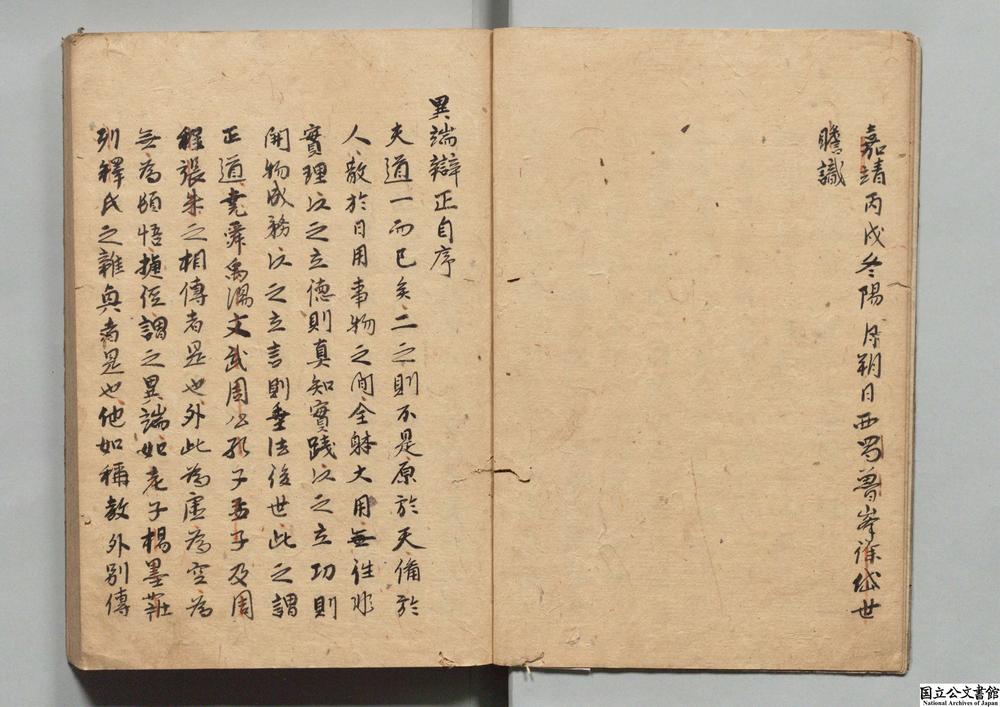 嘉靖丙戌冬陽月朔日西蜀魯峯徐岱世
瞻識
異端辯正自序
夫道一而已矣二之則不是原於天備於
人散於日用事物之间全體大用無往非
實理以之立德則真知實踐以之立功則
開物成務以之立言則垂法後世此之謂
正道堯舜禹湯文武周公孔子孟子及周
程張朱之相傳者是也外此為虛為空為
無為頓悟㨗徑謂之異端如老子楊墨莊
列釋氏之雜奥者是也他如稱教外别傳
国立公文書館
National Archives of Japan